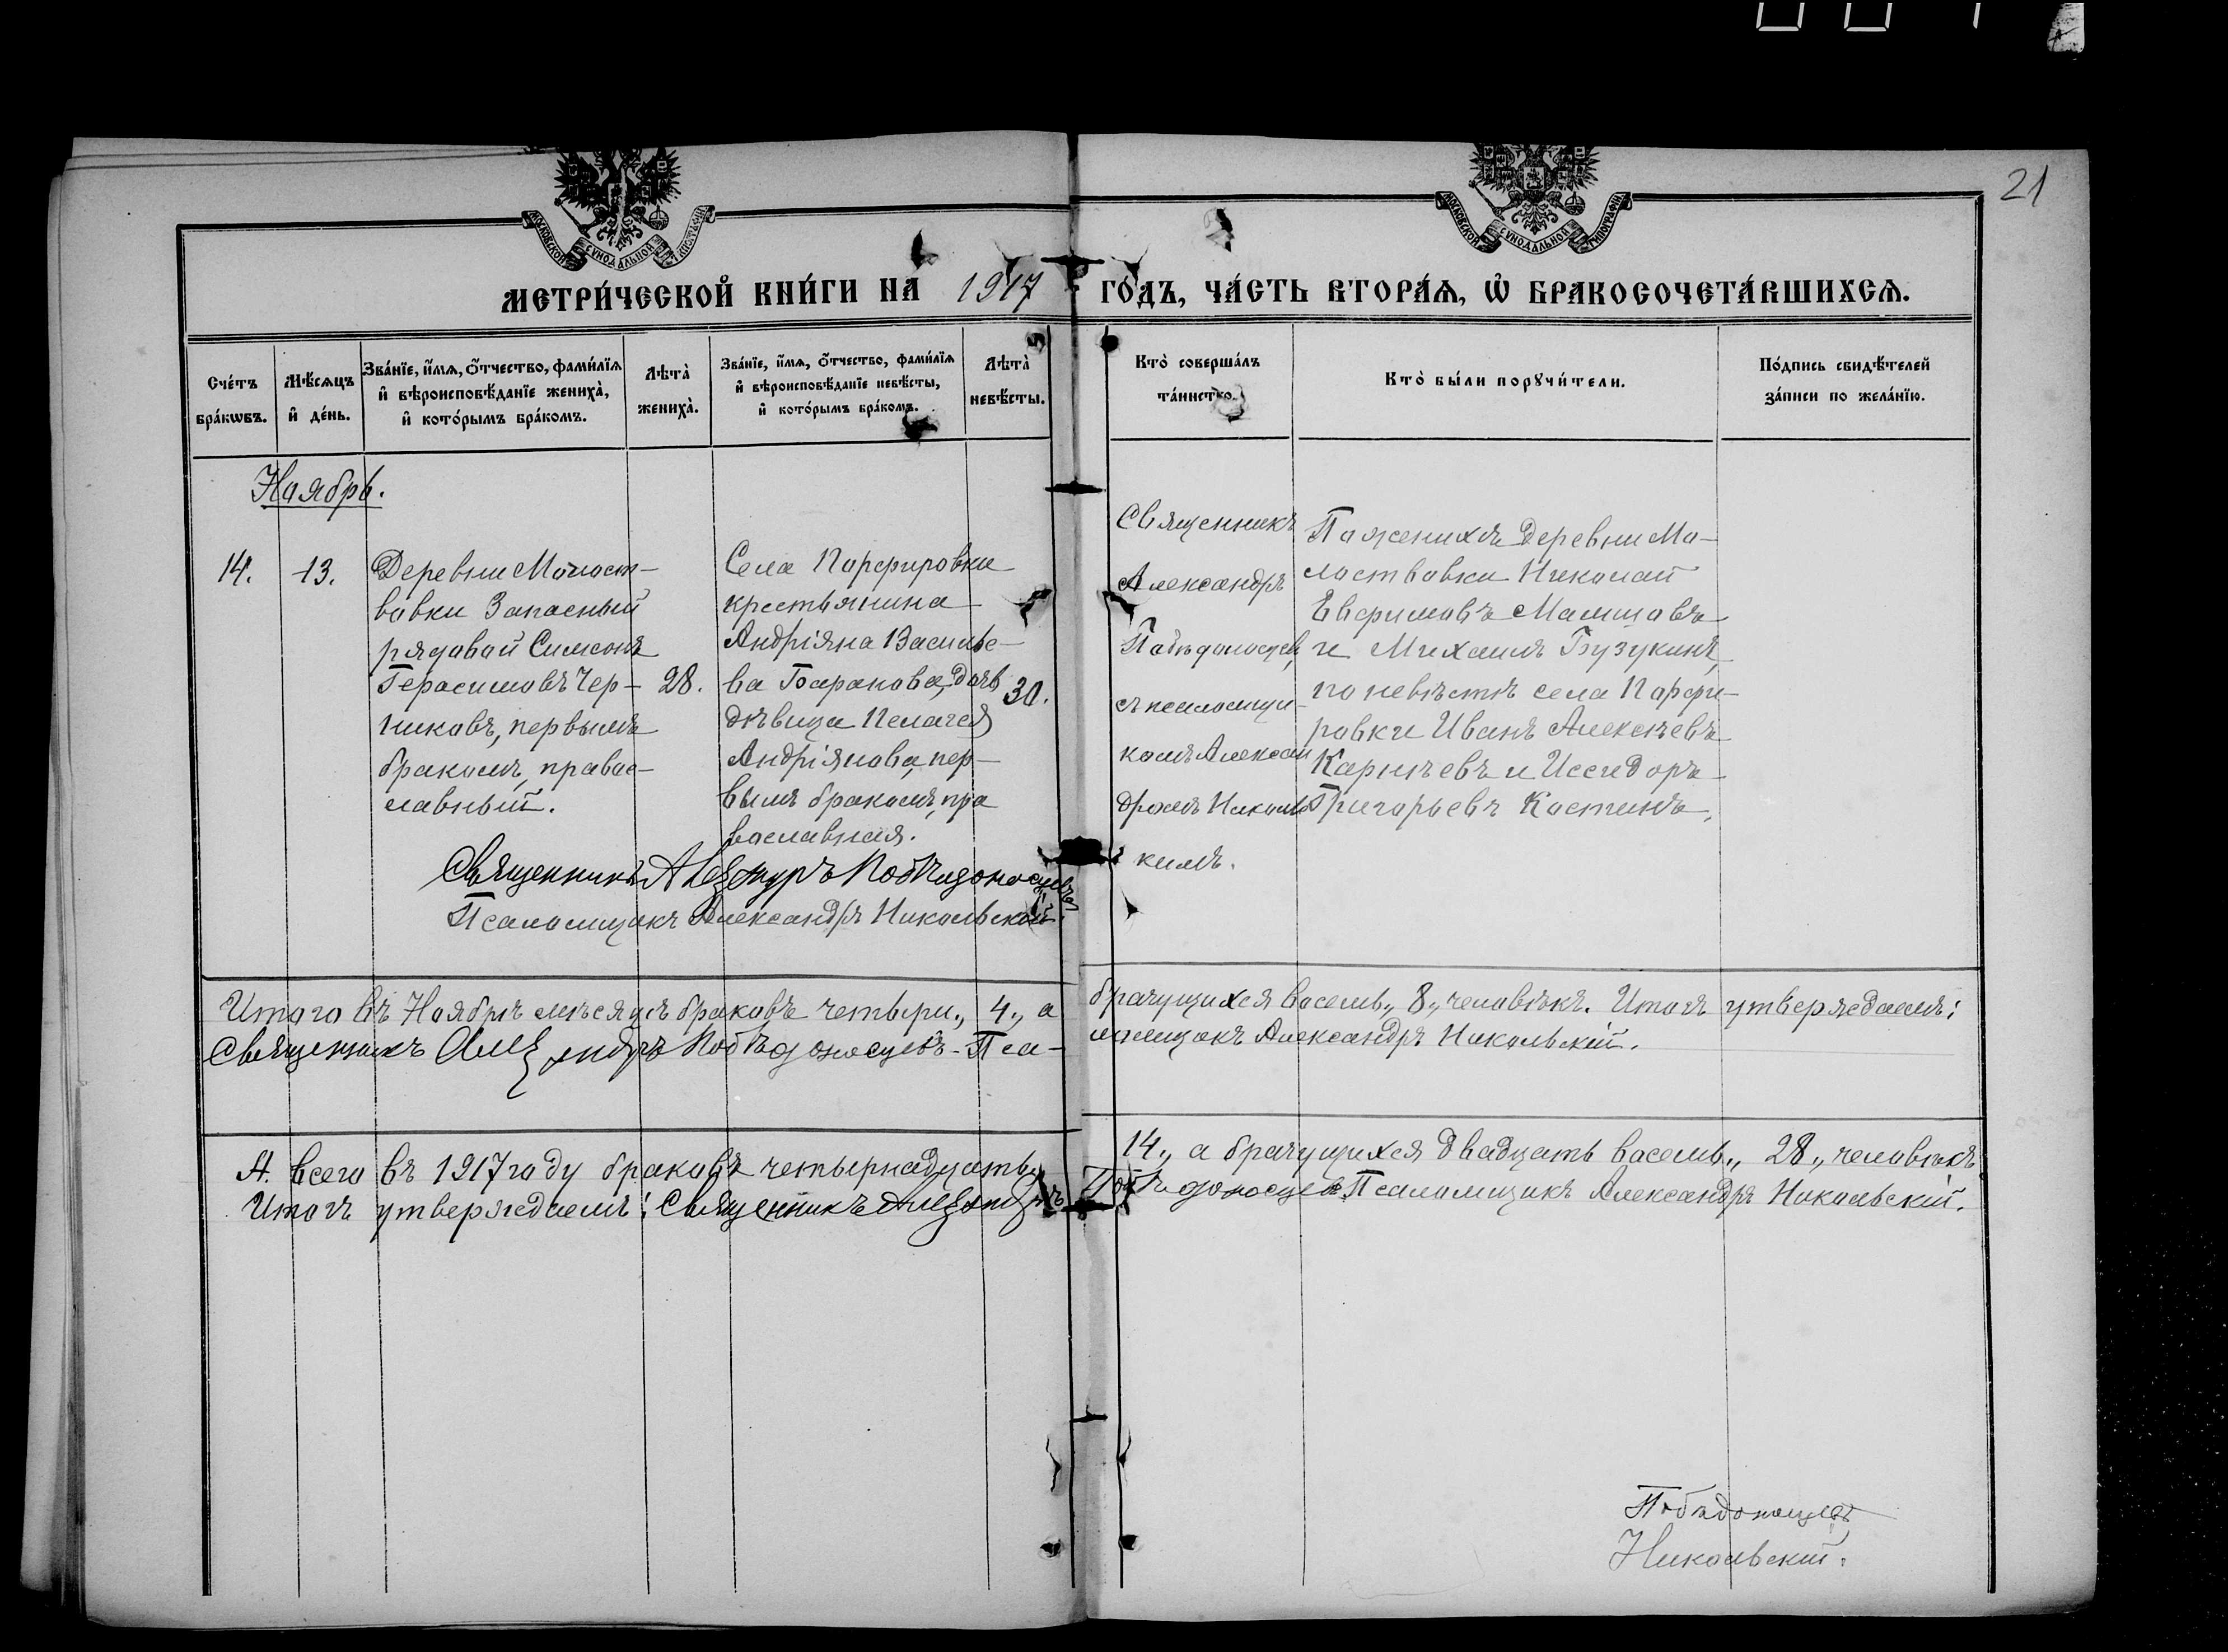 21
МОСКОВСКОЙ СѴНОДАЛЬНОЙ ТИПОГРАФІИ
МОСКОВСКОЙ СѴНОДАЛЬНОЙ ТИПОГРАФІИ
МЕТРИ́ЧЕСКОЙ КНИ́ГИ НА 1917 ГО́ДЪ, ЧА́СТЬ ВТОРА́Ѧ, Ѡ҆ БРАКОСОЧЕТА́ВШИХСѦ.
Сче́тъ бра́кѡвъ.
Мѣ́сѧцъ и҆ де́нь.
Зва́нїе, и҆́мѧ, ѻ҆́тчество, фами́лїѧ и҆ вѣроисповѣ́данїе жениха̀, и҆ кото́рымъ бра́комъ.
Лѣта̀ жениха̀.
Зва́нїе, и҆́мѧ, ѻ҆́тчество, фами́лїѧ и҆ вѣроисповѣ́данїе невѣ́сты, и҆ кото́рымъ бра́комъ.
Лѣта̀ невѣ́сты.
Кто̀ соверша́лъ та́инство.
Кто̀ бы́ли порꙋчи́тели.
По́дпись свидѣ́телей за́писи по жела́нїю.
Ноябрь.
14.
13.
Деревни Моloст-
вовки Запасный
рядовой Симеонъ
Герасимовъ Чер-
никовъ, первымъ
бракомъ, право-
славный.
28.
Села Порфировки
крестьянина
Андріяна Василье-
ва Баранова, дочь
дѣвица Пелагея
Андріянова, пер-
вымъ бракомъ, пра
вославная.
30.
Священникъ
Александръ
Побѣдоносцев,
съ псаломщи-
комъ Алексан
дромъ Николь
кимъ.
По женихѣ деревни Мо-
лоствовки Николай
Евфимовъ Малышовъ
и Михаилъ Бузукинъ,
по невѣстѣ села Порфи-
ровки Иванъ Алексѣевъ
Карнѣевъ и Исидоръ
Григорьевъ Костинъ.
Священникъ Александръ Побѣдоносцевъ
Псаломщикъ Александръ Никольскій.
Итого въ Ноябрѣ мѣсяцѣ браковъ четыри „4„ а брачущихся восемь „8„ человѣкъ. Итогъ утверждаемъ:
Священникъ Александръ Побѣдоносцевъ. Псаломщикъ Александръ Никольскій.
А всего въ 1917 году браковъ четырнадцать „14„ а брачущихся двадцать восемь „28„ человѣкъ
Итогъ утверждаемъ: Священникъ Александръ Побѣдоносцевъ Псаломщикъ Александръ Никольскій.
Побѣдоносцевъ
Никольскій.